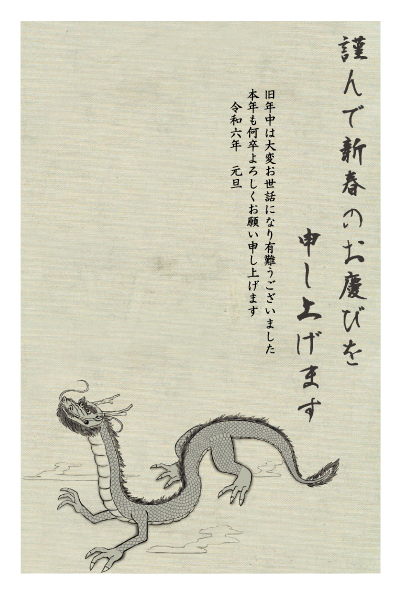 謹んで新春のお慶びを
申し上げます
旧年中は大変お世話になり有難うございました
本年も何卒よろしくお願い申し上げます
令和六年　元旦